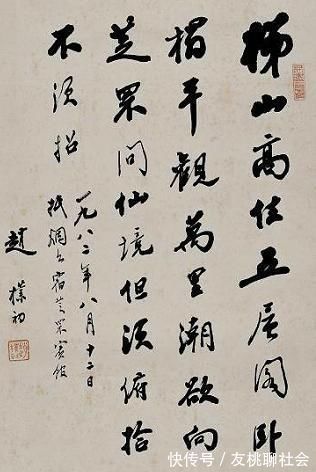 梯山高住五层阁卧
榻平观万里潮欲向
芝罘问仙境但须俯拾
不须招
一九八二年八月十二日
抵烟台宿芝罘宾馆
赵朴初
快传号/友桃聊社会